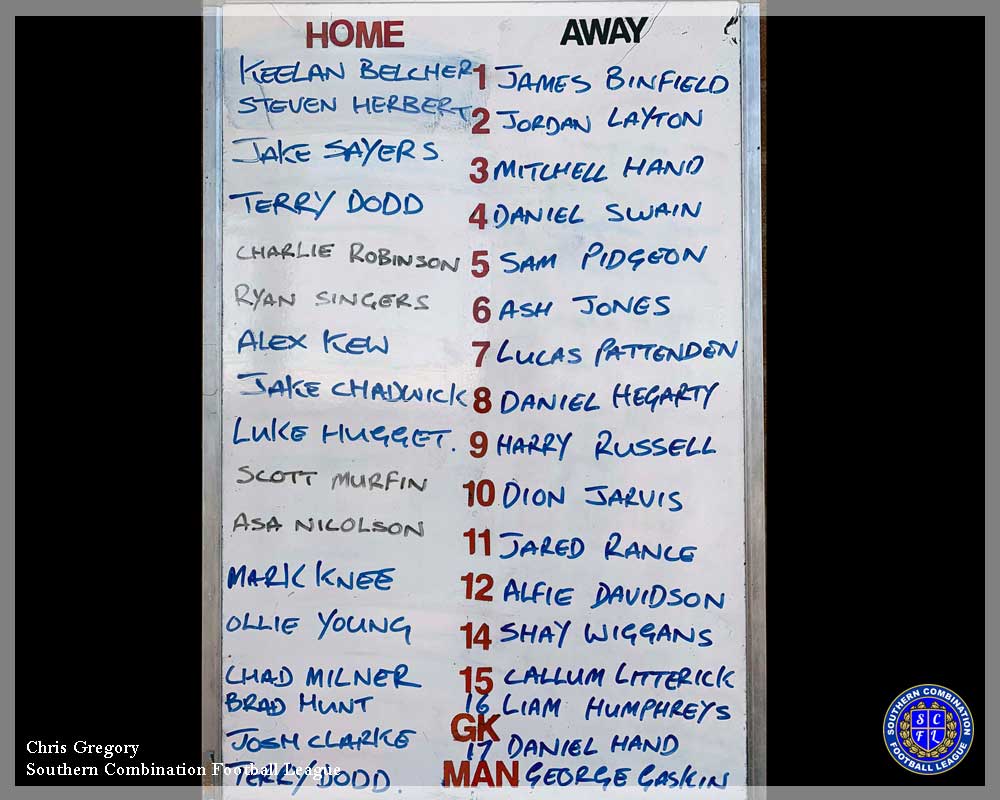 HOME AWAY
KEELAN BELCHER 1 JAMES BINFIELD
STEVEN HERBERT 2 JORDAN LAYTON
JAKE SAYERS 3 MITCHELL HAND
TERRY DODD 4 DANIEL SWAIN
CHARLIE ROBINSON 5 SAM PIDGEON
RYAN SINGERS 6 ASH JONES
ALEX KEW 7 LUCAS PATTENDEN
JAKE CHADWICK 8 DANIEL HEGARTY
LUKE HUGGET. 9 HARRY RUSSELL
SCOTT MURFIN 10 DION JARVIS
ASA NICOLSON 11 JARED RANCE
MARK KNEE 12 ALFIE DAVIDSON
OLLIE YOUNG 14 SHAY WIGGANS
CHAD MILNER 15 CALLUM LITTERICK
BRAD HUNT 16 LIAM HUMPHREYS
GK
JOSH CLARKE 17 DANIEL HAND
TERRY DODD. MAN GEORGE GASKIN
Chris Gregory
Southern Combination Football League
SOUTHERN COMBINATION
S C
F L
FOOTBALL LEAGUE